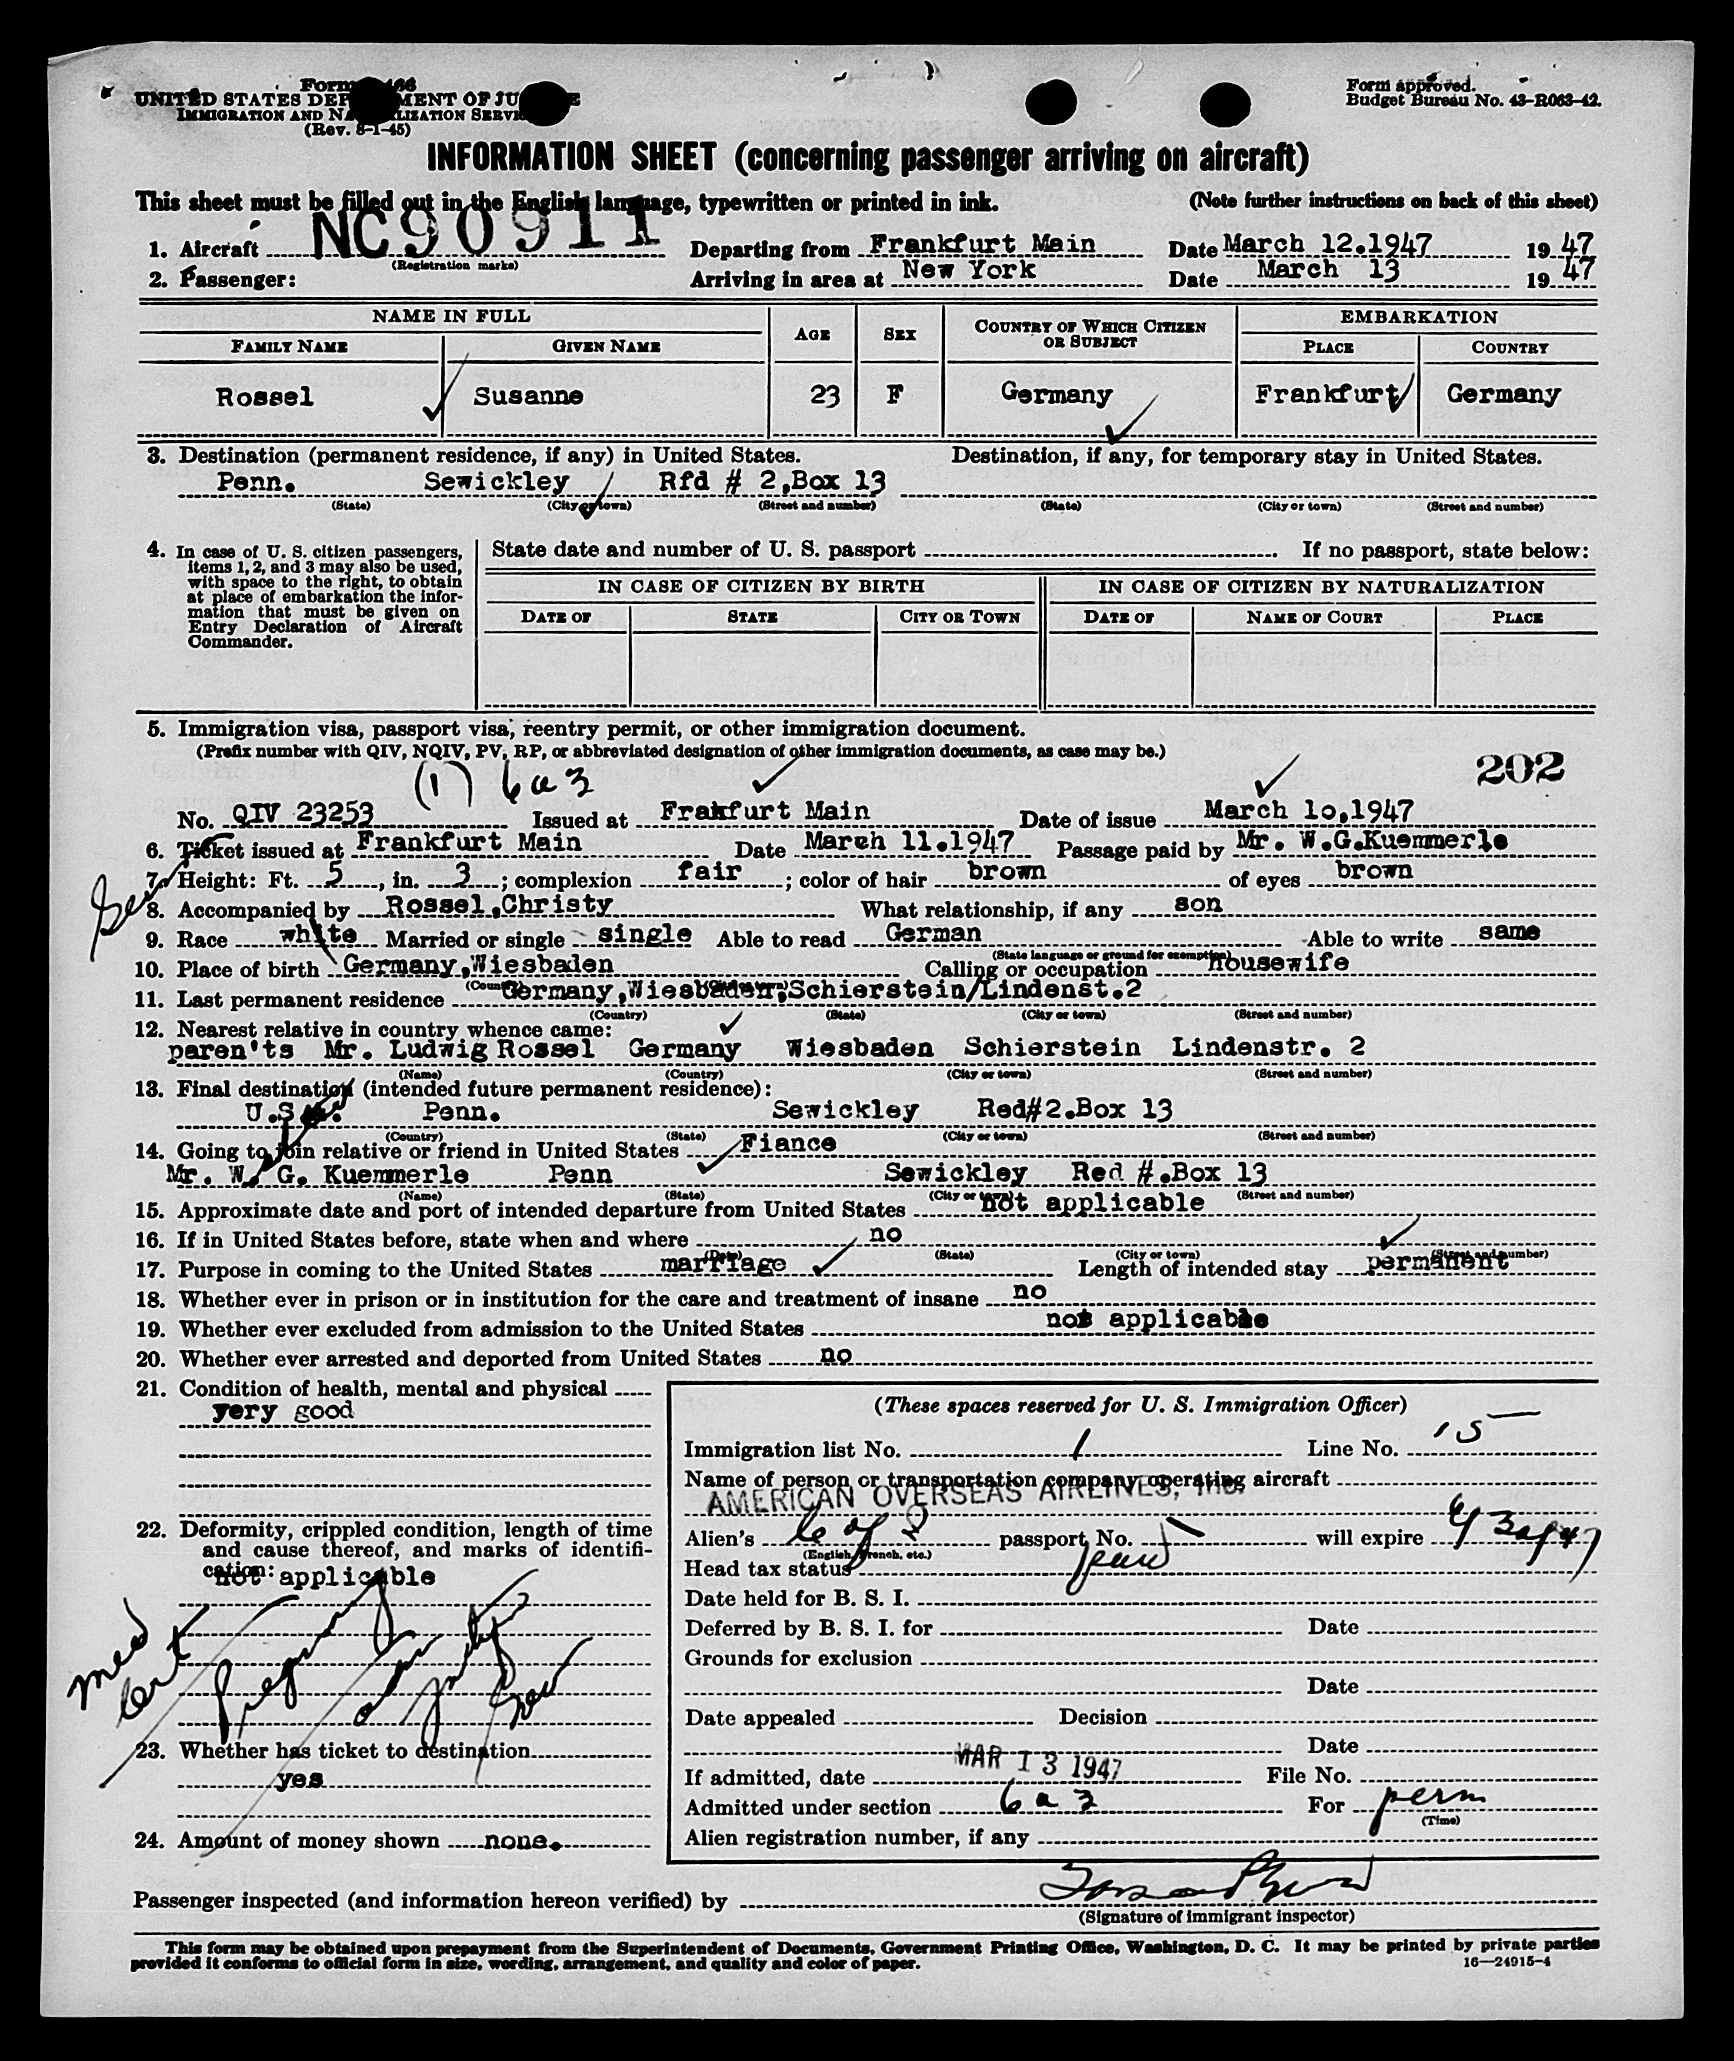 Form
UNITED STATES DEPARTMENT OF JUSTICE
IMMIGRATION AND NATURALIZATION SERVICE
(Rev. 8-1-45)
Form approved.
Budget Bureau No. 43-R063-42.
INFORMATION SHEET (concerning passenger arriving on aircraft)
This sheet must be filled out in the English language, typewritten or printed in ink. (Note further instructions on back of this sheet)
1. Aircraft NC90911 Departing from Frankfurt Main Date March 12.1947 19 47
(Registration marks)
2. Passenger: Arriving in area at New York Date March 13 19 47
NAME IN FULL AGE SEX COUNTRY OF WHICH CITIZEN OR SUBJECT EMBARKATION
FAMILY NAME GIVEN NAME PLACE COUNTRY
Rossel Susanne 23 F Germany Frankfurt Germany
3. Destination (permanent residence, if any) in United States. Destination, if any, for temporary stay in United States.
Penn. Sewickley Rfd # 2,Box 13
(State) (City or town) (Street and number) (State) (City or town) (Street and number)
4. In case of U. S. citizen passengers, items 1, 2, and 3 may also be used, with space to the right, to obtain at place of embarkation the information that must be given on Entry Declaration of Aircraft Commander.
State date and number of U. S. passport . If no passport, state below:
IN CASE OF CITIZEN BY BIRTH IN CASE OF CITIZEN BY NATURALIZATION
DATE OF STATE CITY OR TOWN DATE OF NAME OF COURT PLACE
5. Immigration visa, passport visa, reentry permit, or other immigration document.
(Prefix number with QIV, NQIV, PV, RP, or abbreviated designation of other immigration documents, as case may be.)
(1) 6 a 3 202
No. QIV 23253 Issued at Frakfurt Main Date of issue March 1o,1947
6. Ticket issued at Frankfurt Main Date March 11.1947 Passage paid by Mr. W.G.Kuemmerle
7. Height: Ft. 5, in. 3; complexion fair; color of hair brown of eyes brown
8. Accompanied by Rossel,Christy What relationship, if any son
9. Race white Married or single single Able to read German Able to write same
(State language or ground for exemption)
10. Place of birth Germany,Wiesbaden Calling or occupation housewife
(Country) (City or town)
11. Last permanent residence Germany,Wiesbaden,Schierstein/Lindenst.2
(Country) (State) (City or town) (Street and number)
12. Nearest relative in country whence came:
paren'ts Mr. Ludwig Rossel Germany Wiesbaden Schierstein Lindenstr. 2
(Name) (Country) (City or town) (Street and number)
13. Final destination (intended future permanent residence):
U.S Penn. Sewickley Red#2.Box 13
(Country) (State) (City or town) (Street and number)
14. Going to join relative or friend in United States Fiance
Mr. W. G. Kuemmerle Penn Sewickley Red #.Box 13
(Name) (State) (City or town) (Street and number)
15. Approximate date and port of intended departure from United States not applicable
16. If in United States before, state when and where no
(Date) (State) (City or town) (Street and number)
17. Purpose in coming to the United States marriage Length of intended stay permanent
18. Whether ever in prison or in institution for the care and treatment of insane no
19. Whether ever excluded from admission to the United States not applicable
20. Whether ever arrested and deported from United States no
21. Condition of health, mental and physical
very good
22. Deformity, crippled condition, length of time and cause thereof, and marks of identification:
not applicable
med cert
Pregnancy
23. Whether has ticket to destination
yes
24. Amount of money shown none.
(These spaces reserved for U. S. Immigration Officer)
Immigration list No. 1 Line No. 15
Name of person or transportation company operating aircraft
AMERICAN OVERSEAS AIRLINES, INC.
Alien's C of I passport No. will expire
(English, French, etc.)
Head tax status paid
Date held for B. S. I.
Deferred by B. S. I. for Date
Grounds for exclusion
Date
Date appealed Decision
Date
If admitted, date MAR 13 1947 File No.
Admitted under section 6 a 3 For perm
(Time)
Alien registration number, if any
Passenger inspected (and information hereon verified) by
(Signature of immigrant inspector)
This form may be obtained upon prepayment from the Superintendent of Documents, Government Printing Office, Washington, D. C. It may be printed by private parties
provided it conforms to official form in size, wording, arrangement, and quality and color of paper. 16—24915-4